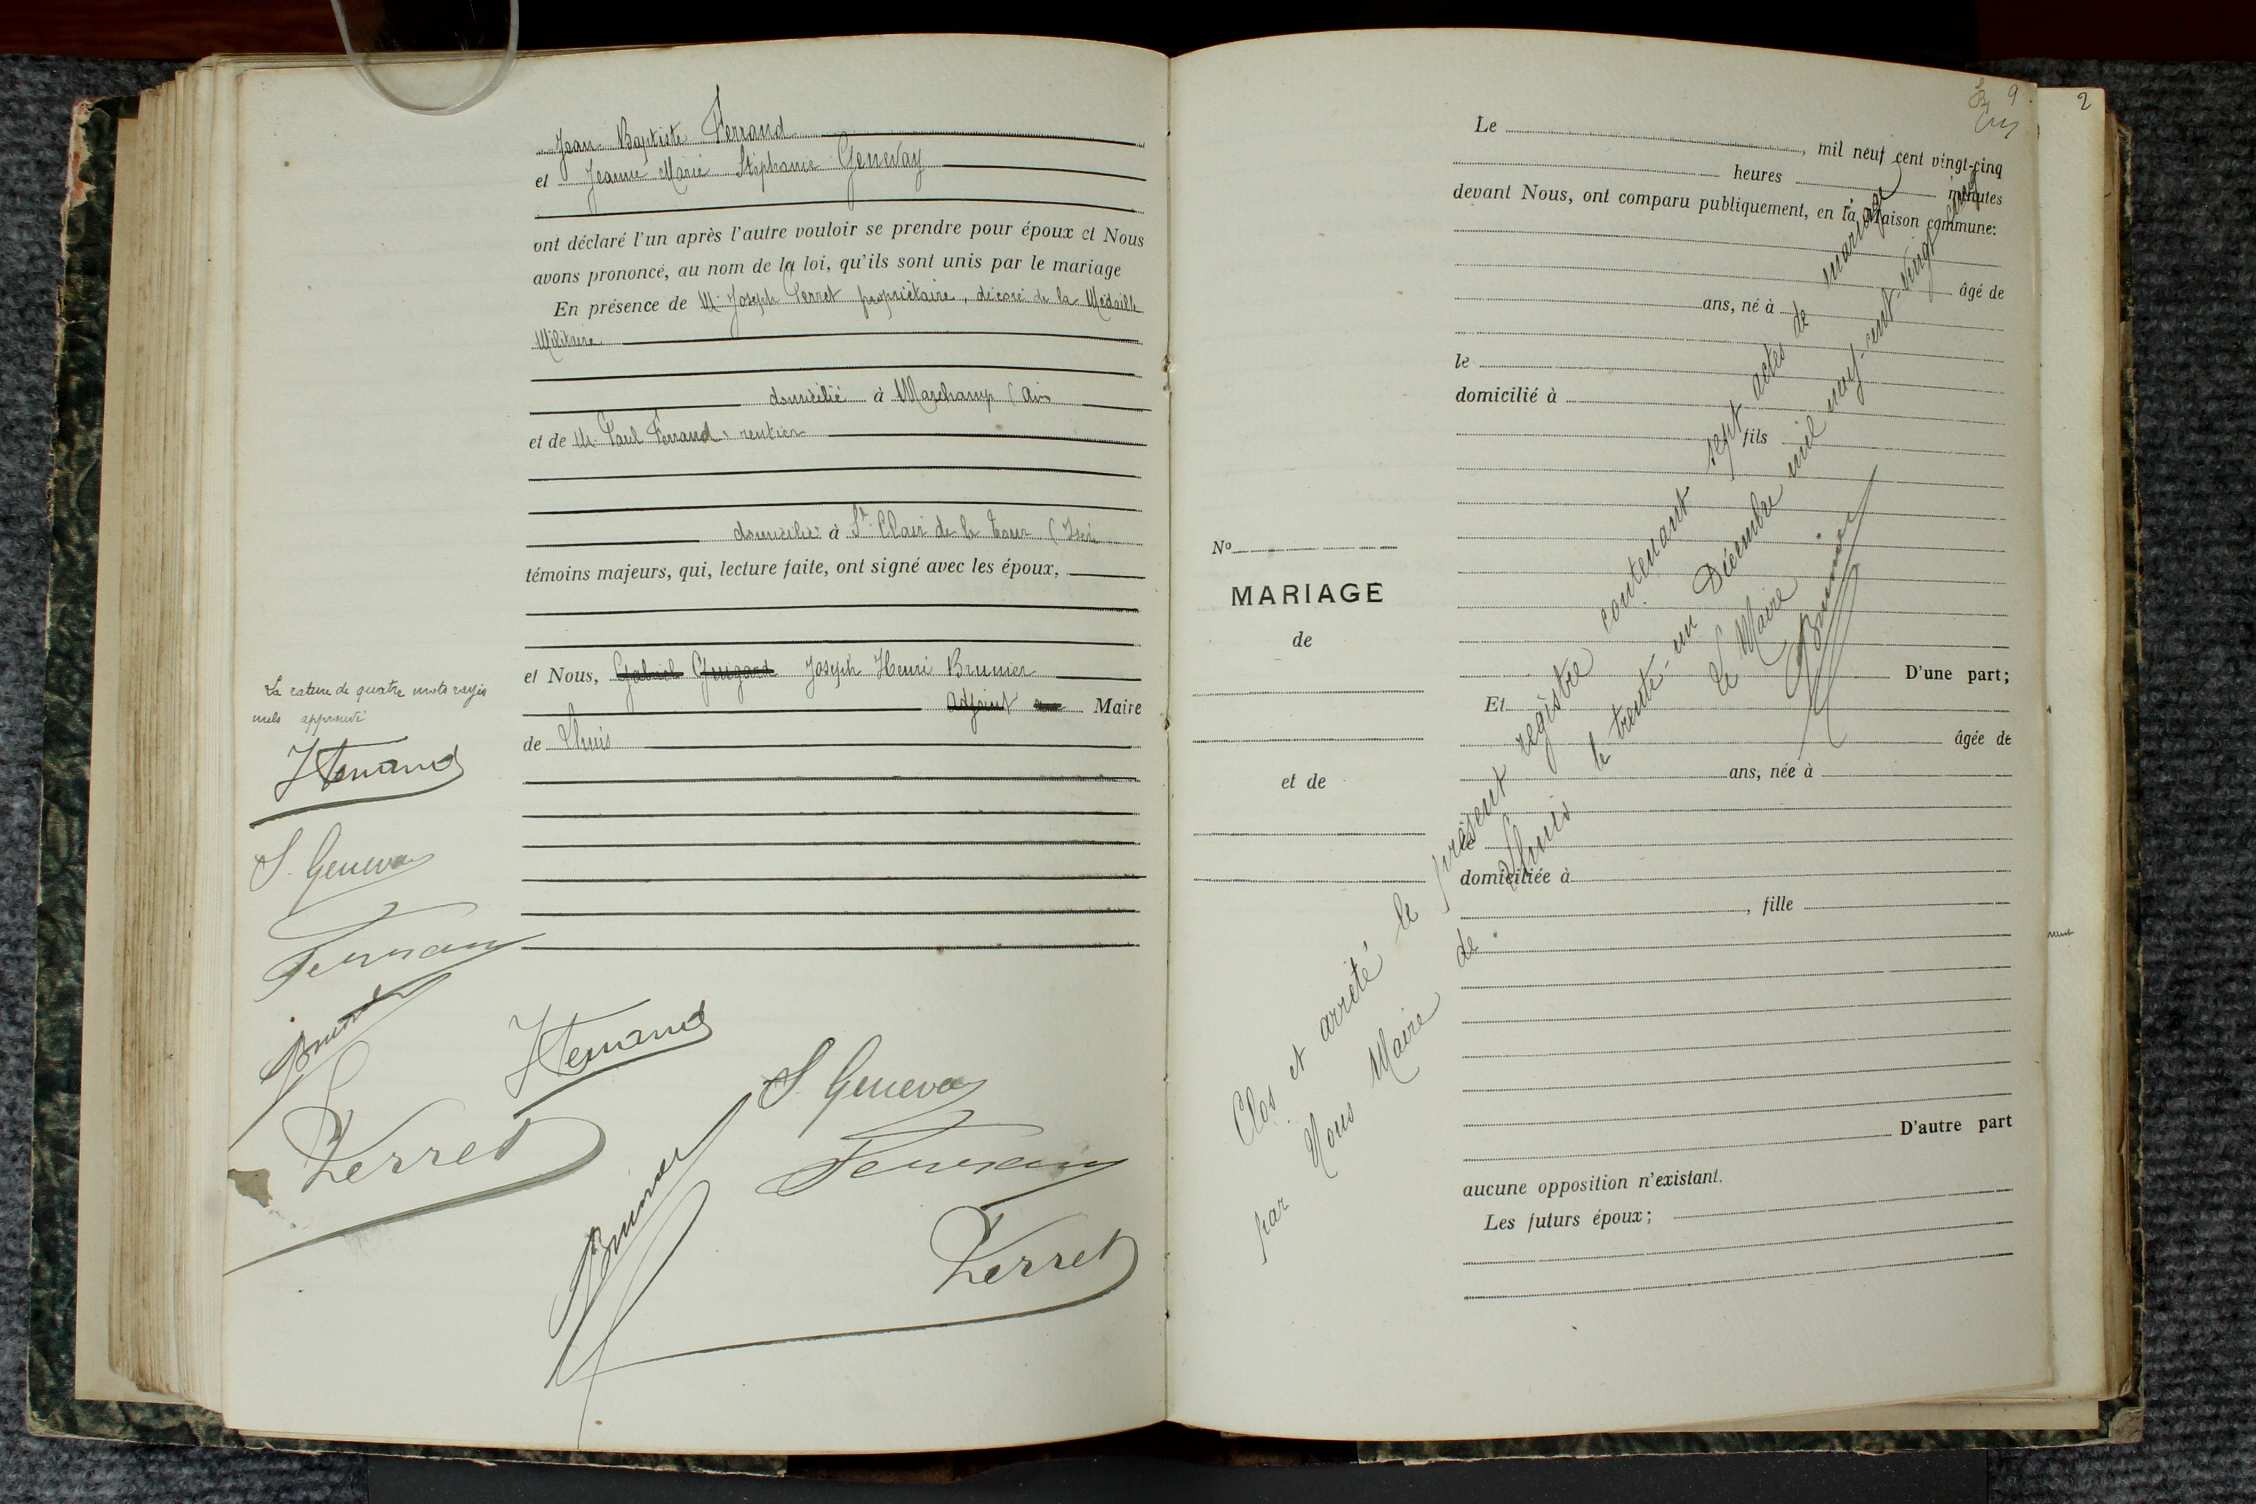 Jean Baptiste Ferrand
et Jeanne Marie Stéphanie Genevay
ont déclaré l'un après l'autre vouloir se prendre pour époux et Nous
avons prononcé, au nom de la loi, qu'ils sont unis par le mariage
En présence de M. Joseph Perret propriétaire, décoré de la Médaille
Militaire
domicilié à Marchamp (Ain
et de M. Paul Ferrand, rentier
domicilié à St Clair de la Tour (Isère
témoins majeurs, qui, lecture faite, ont signé avec les époux,
et Nous, Gabriel Guigard Joseph Henri Brunier
Adjoint Maire
de Lhuis
La rature de quatre mots rayés
nuls approuvé
JFerrand
S. Genevay
Ferrand
Brunier
Perret
JFerrand
S. Genevay
Ferrand
Brunier
Perret
9
2
Le , mil neuf cent vingt-cinq
heures minutes
devant Nous, ont comparu publiquement, en la Maison commune:
âgé de
ans, né à
le
domicilié à
fils
D'une part;
Et
âgée de
ans, née à
le
domiciliée à
, fille
de
D'autre part
aucune opposition n'existant.
Les futurs époux;
No
MARIAGE
de
et de
Clos et arrêté le présent registre contenant sept actes de mariage
par Nous Maire de Lhuis le trente-un Décembre mil neuf-cent-vingt cinq
Le Maire
Brunier